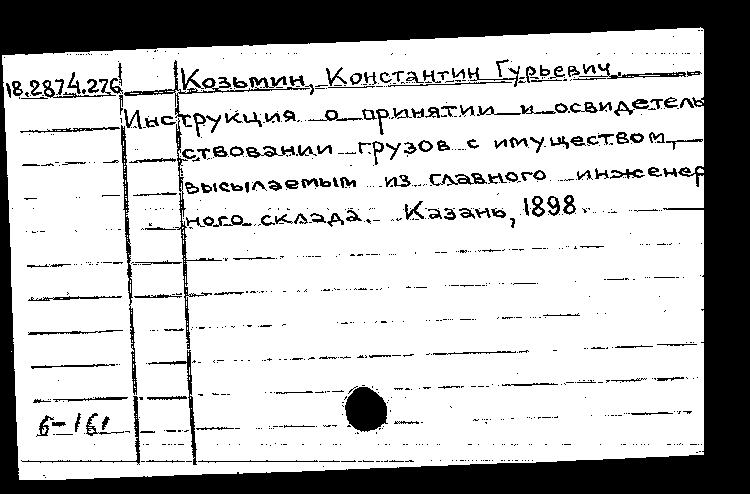 18.2874.276 Козьмин, Константин Гурьевич.
Инструкция о принятии и освидетель
ствовании грузов с имуществом,
высылаемым из главного инженер
ного склада. Казань, 1898.
6-161